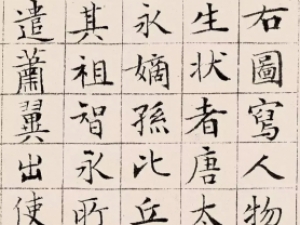 右圖寫人物
生狀者唐太
永嫡孫比丘
其祖智永所
遣蕭翼出使